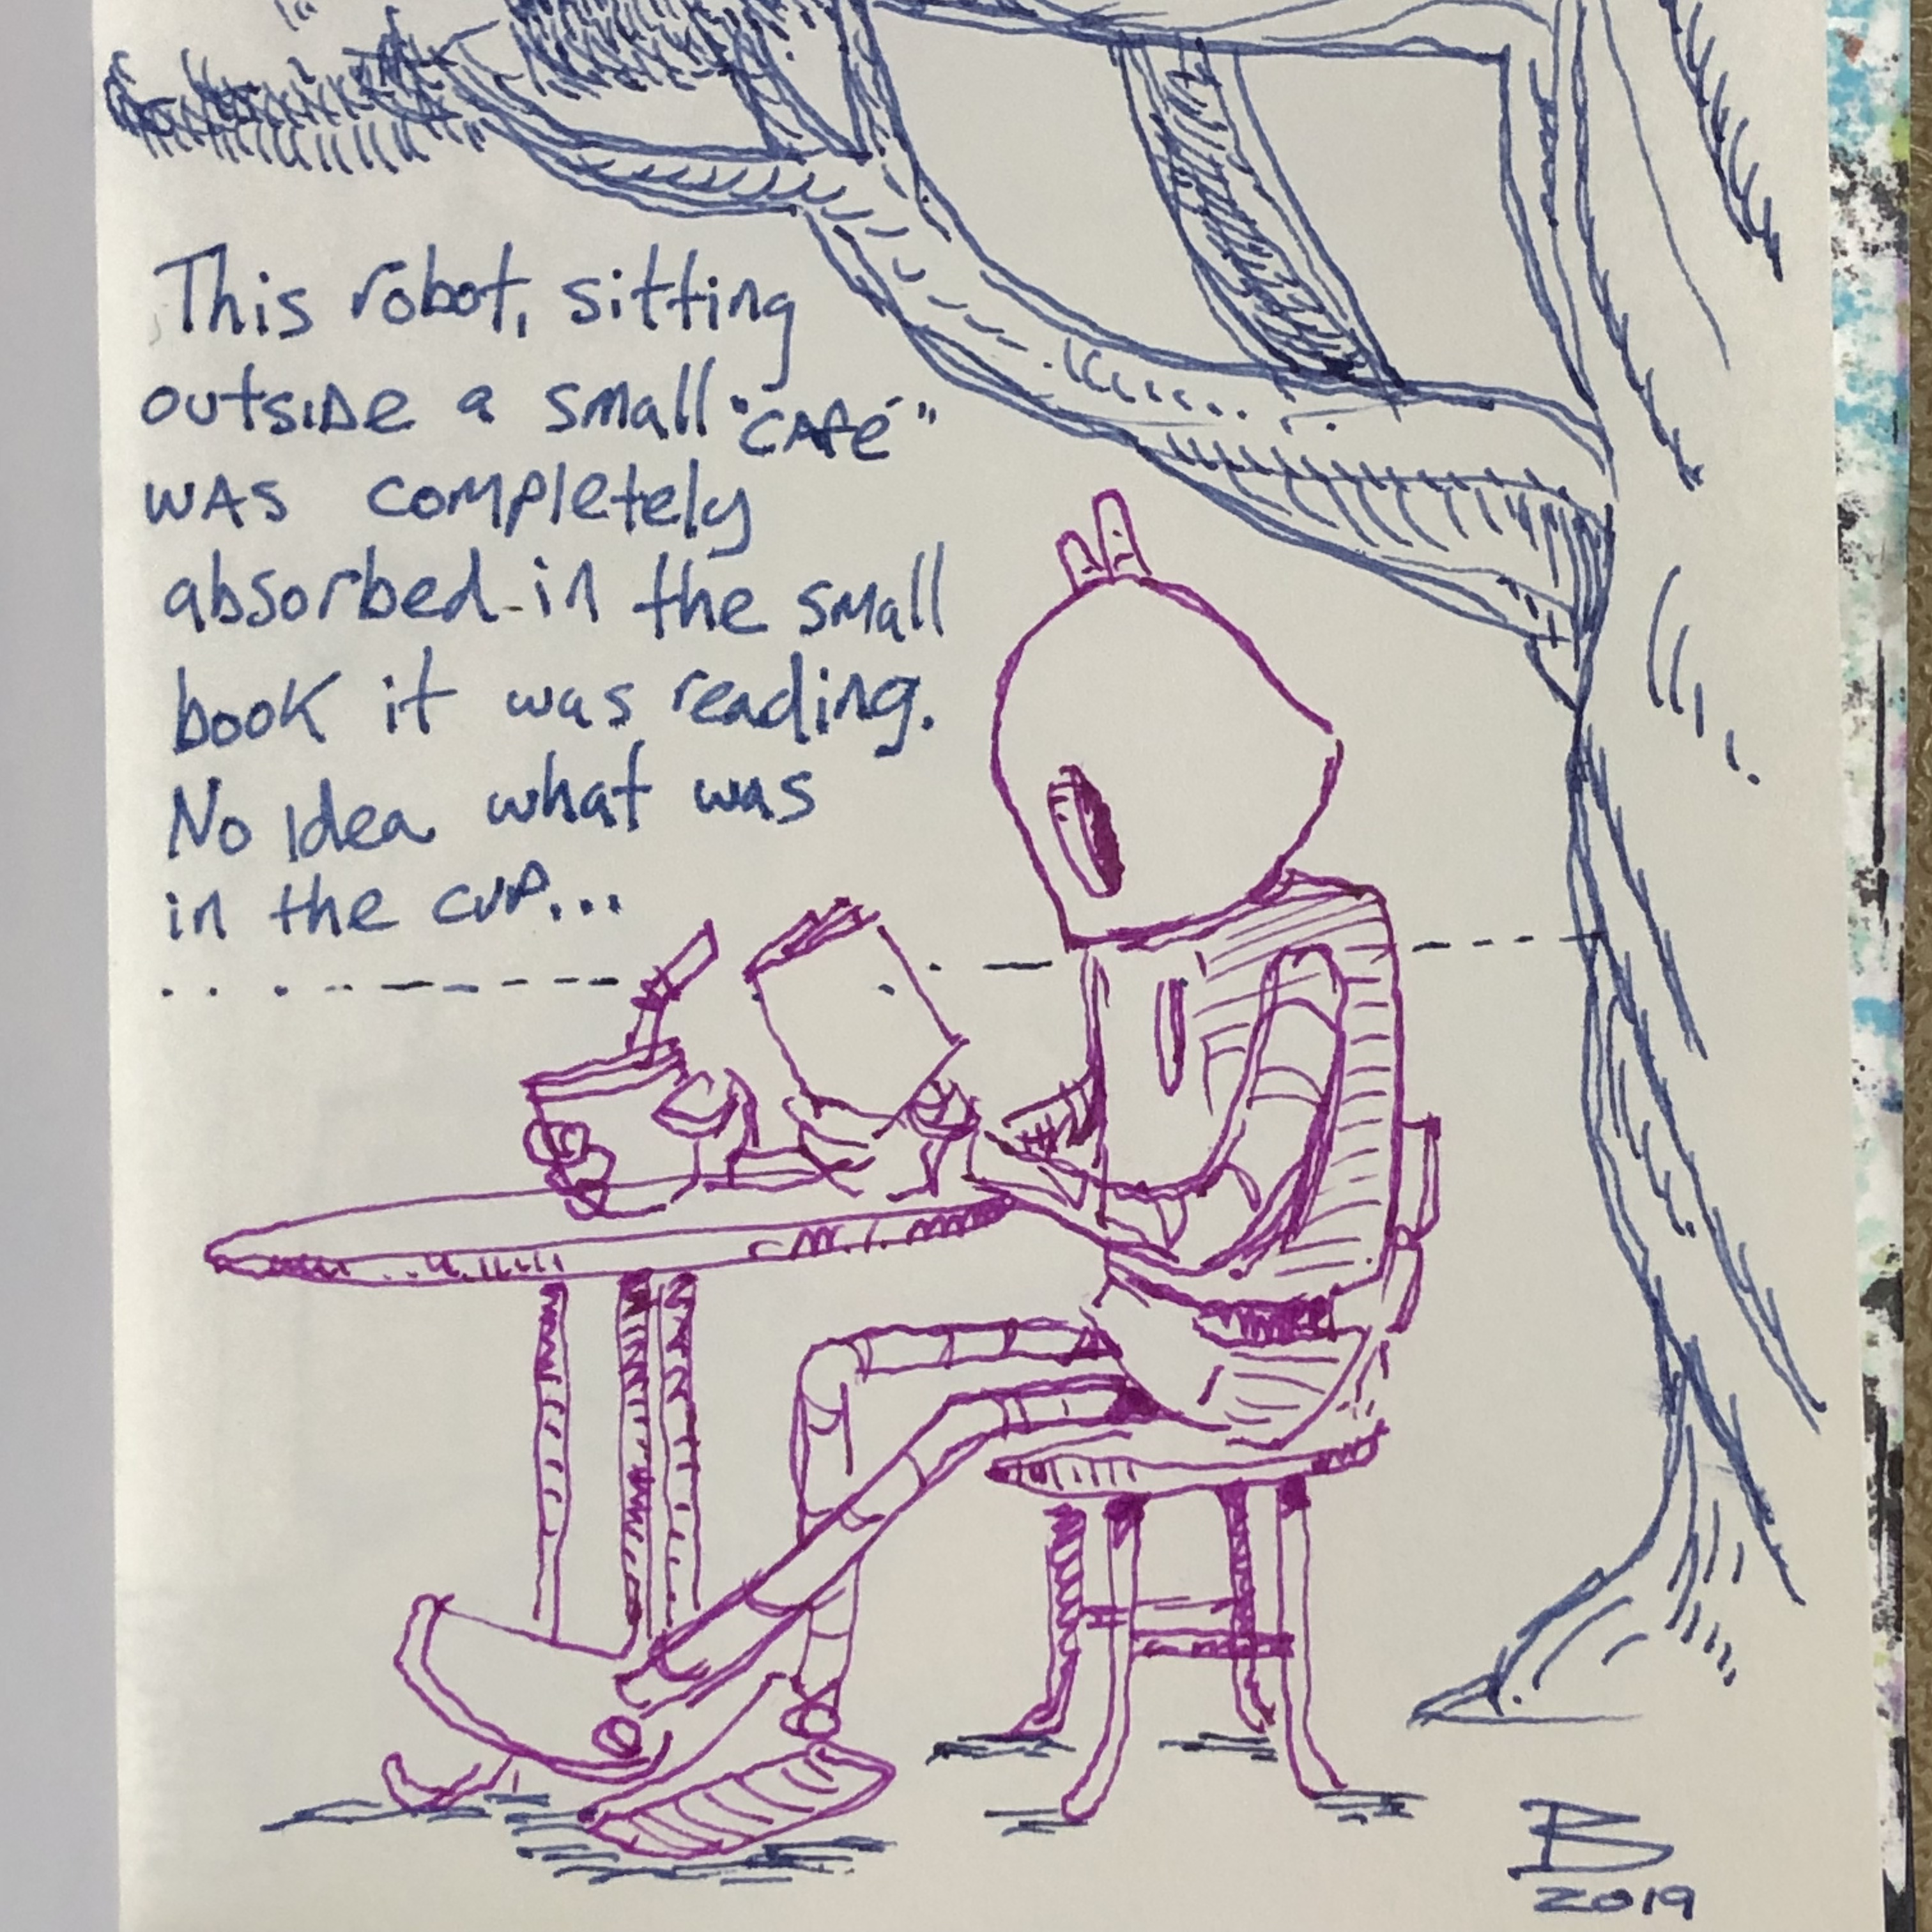 This robot, sitting
outside a small "CAfé"
was completely
absorbed in the small
book it was reading.
No idea what was
in the cup...
B
2019